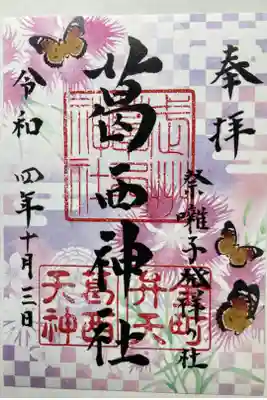 奉拝
祭囃子発祥の社
葛西神社
令和四年十月三日
葛西
天神
弁天